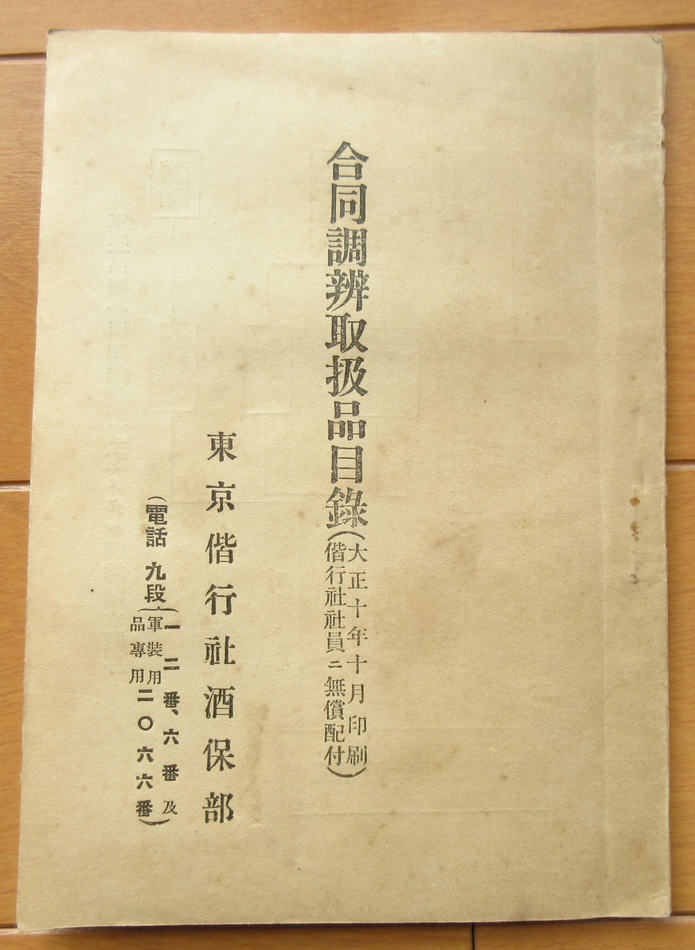 合同調辨取扱品目錄(大正十年十月印刷
偕行社社員ニ無償配付)
東京偕行社酒保部
(電話 九段(一二番、六番及
軍裝用品專用二〇六六番)